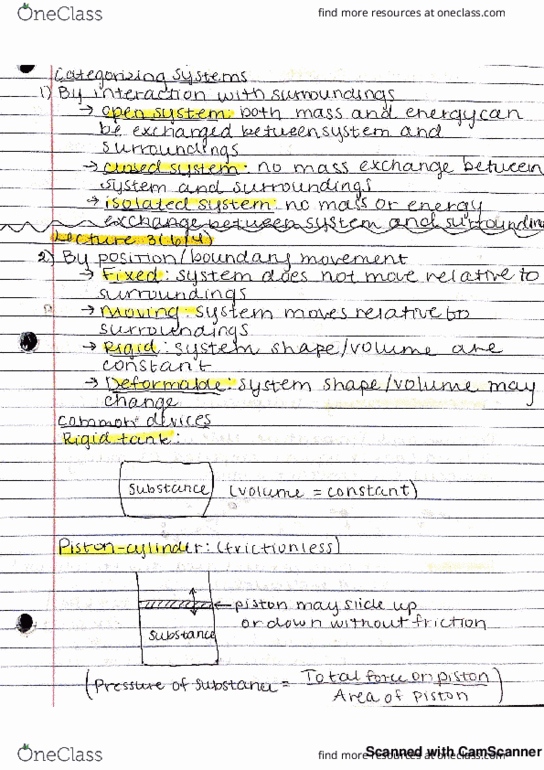 OneClass
find more resources at oneclass.com
Categorizing Systems
1) By interaction with surroundings
→ open system: both mass and energy can
be exchanged between system and
surroundings
→ closed system: no mass exchange between
system and surroundings
→ isolated system: no mass or energy
exchange between system and surrounding
Lecture 3(6/4)
2) By position/boundary movement
→ Fixed: system does not move relative to
surroundings
→ Moving: system moves relative to
surroundings
→ Rigid: system shape/volume are
constant
→ Deformable: system shape/volume may
change
Common devices
Rigid tank:
substance (volume = constant)
Piston-cylinder: (frictionless)
← piston may slide up
or down without friction
substance
(Pressure of substance = Total force on piston
Area of piston)
OneClass
find more resources at oneclass.com
Scanned with CamScanner